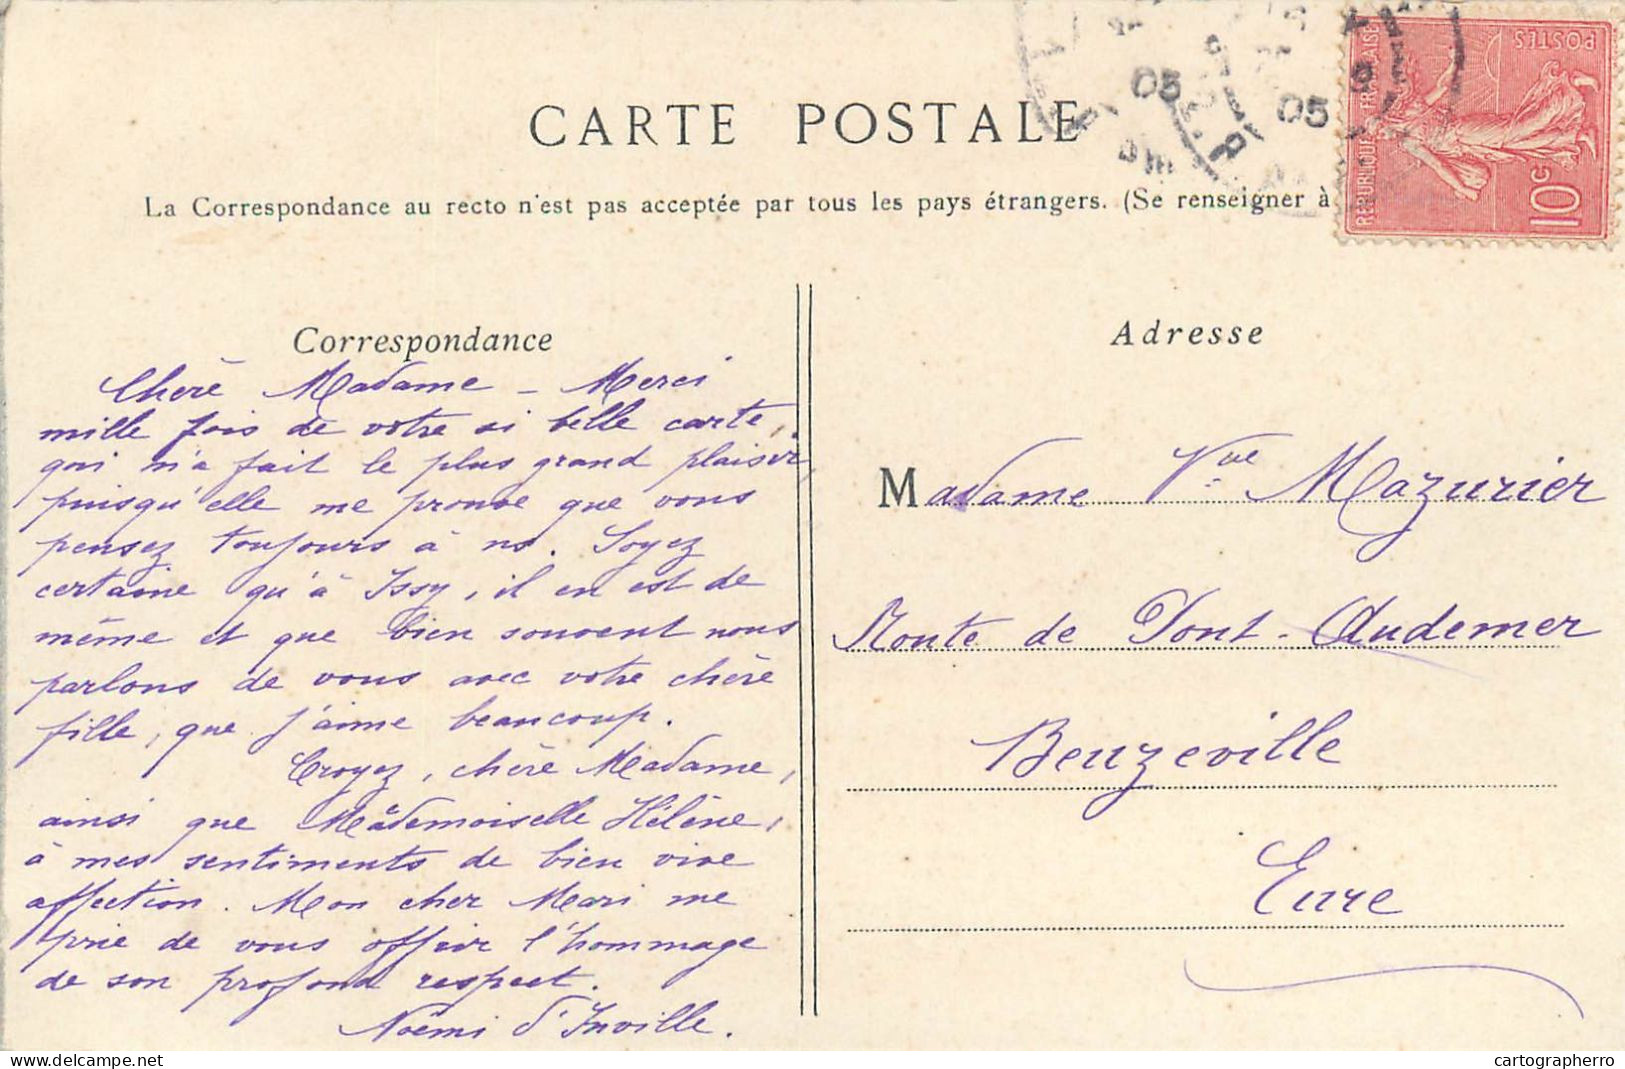 CARTE POSTALE
La Correspondance au recto n'est pas acceptée par tous les pays étrangers. (Se renseigner à
REPUBLIQUE FRANÇAISE
POSTES
10c
05
05
Correspondance
Chère Madame - Merci
mille fois de votre si belle carte,
qui m'a fait le plus grand plaisir,
puisqu'elle me prouve que vous
pensez toujours à ns. Soyez
certaine qu'à Issy, il en est de
même et que bien souvent nous
parlons de vous avec votre chère
fille, que j'aime beaucoup.
Croyez, chère Madame,
ainsi que Mademoiselle Hélène,
à mes sentiments de bien vive
affection. Mon cher Mari me
prie de vous offrir l'hommage
de son profond respect.
Noëmi d'Inville.
Adresse
Madame Vve Mazurier
Route de Pont-Audemer
Beuzeville
Eure
cartographerro